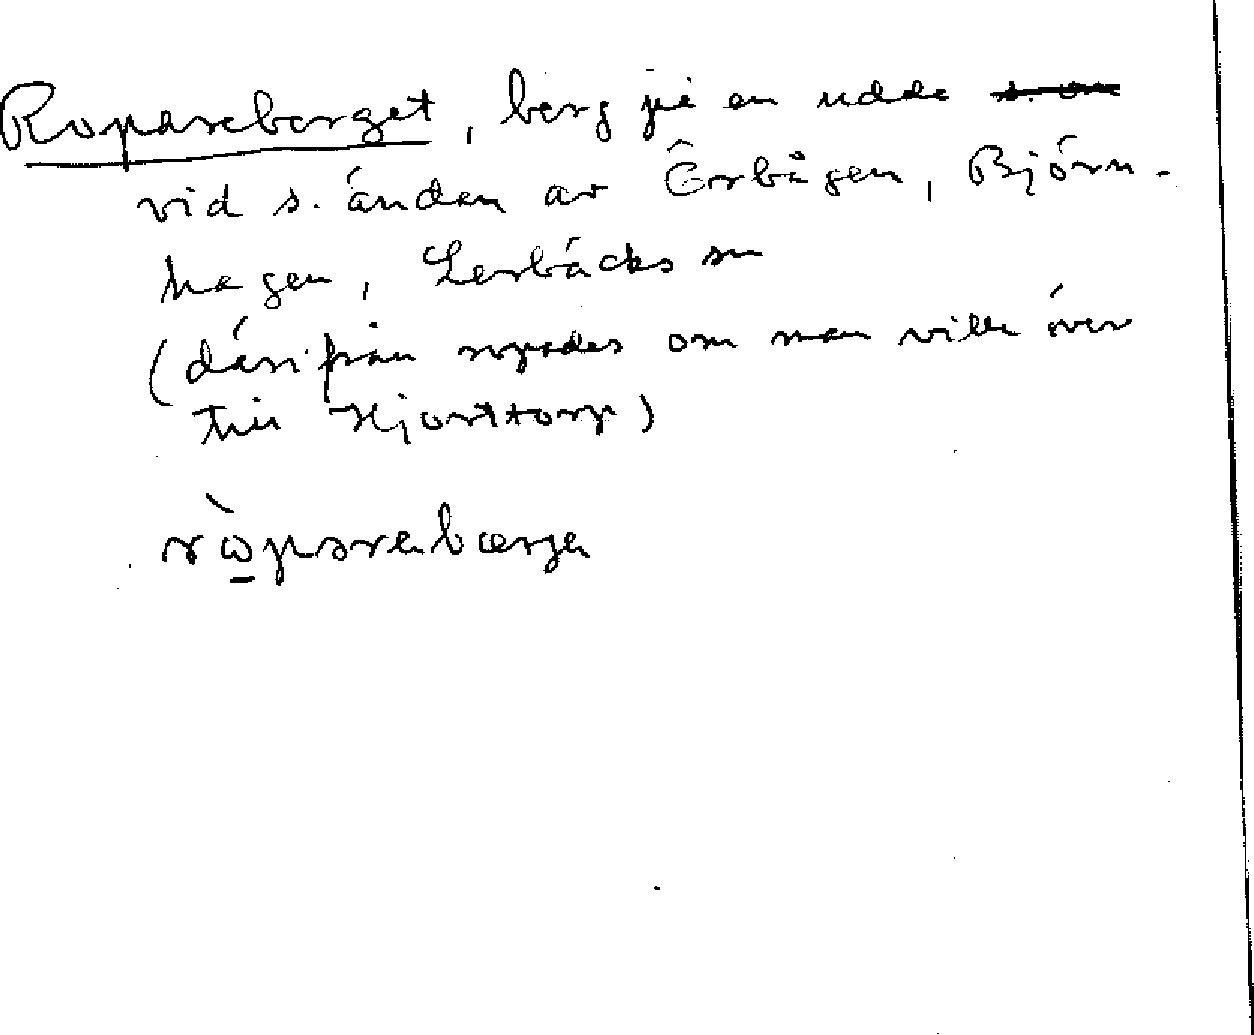 Ropareberget, berg på en udde
vid s. änden av Örbågen, Björn-
hagen, Lerbäcks sn
(därifrån ropades om man ville över
till Hjorttorp)